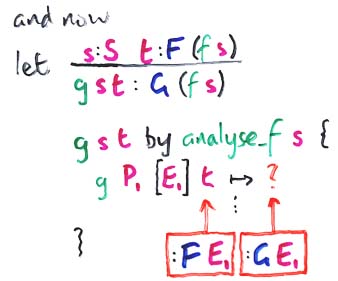 and now
let s:S t:F (f s)
g s t : G (f s)
g s t by analyse_f s {
g P₁ [E₁] t ↦ ?
⋮
}
:F E₁ :G E₁